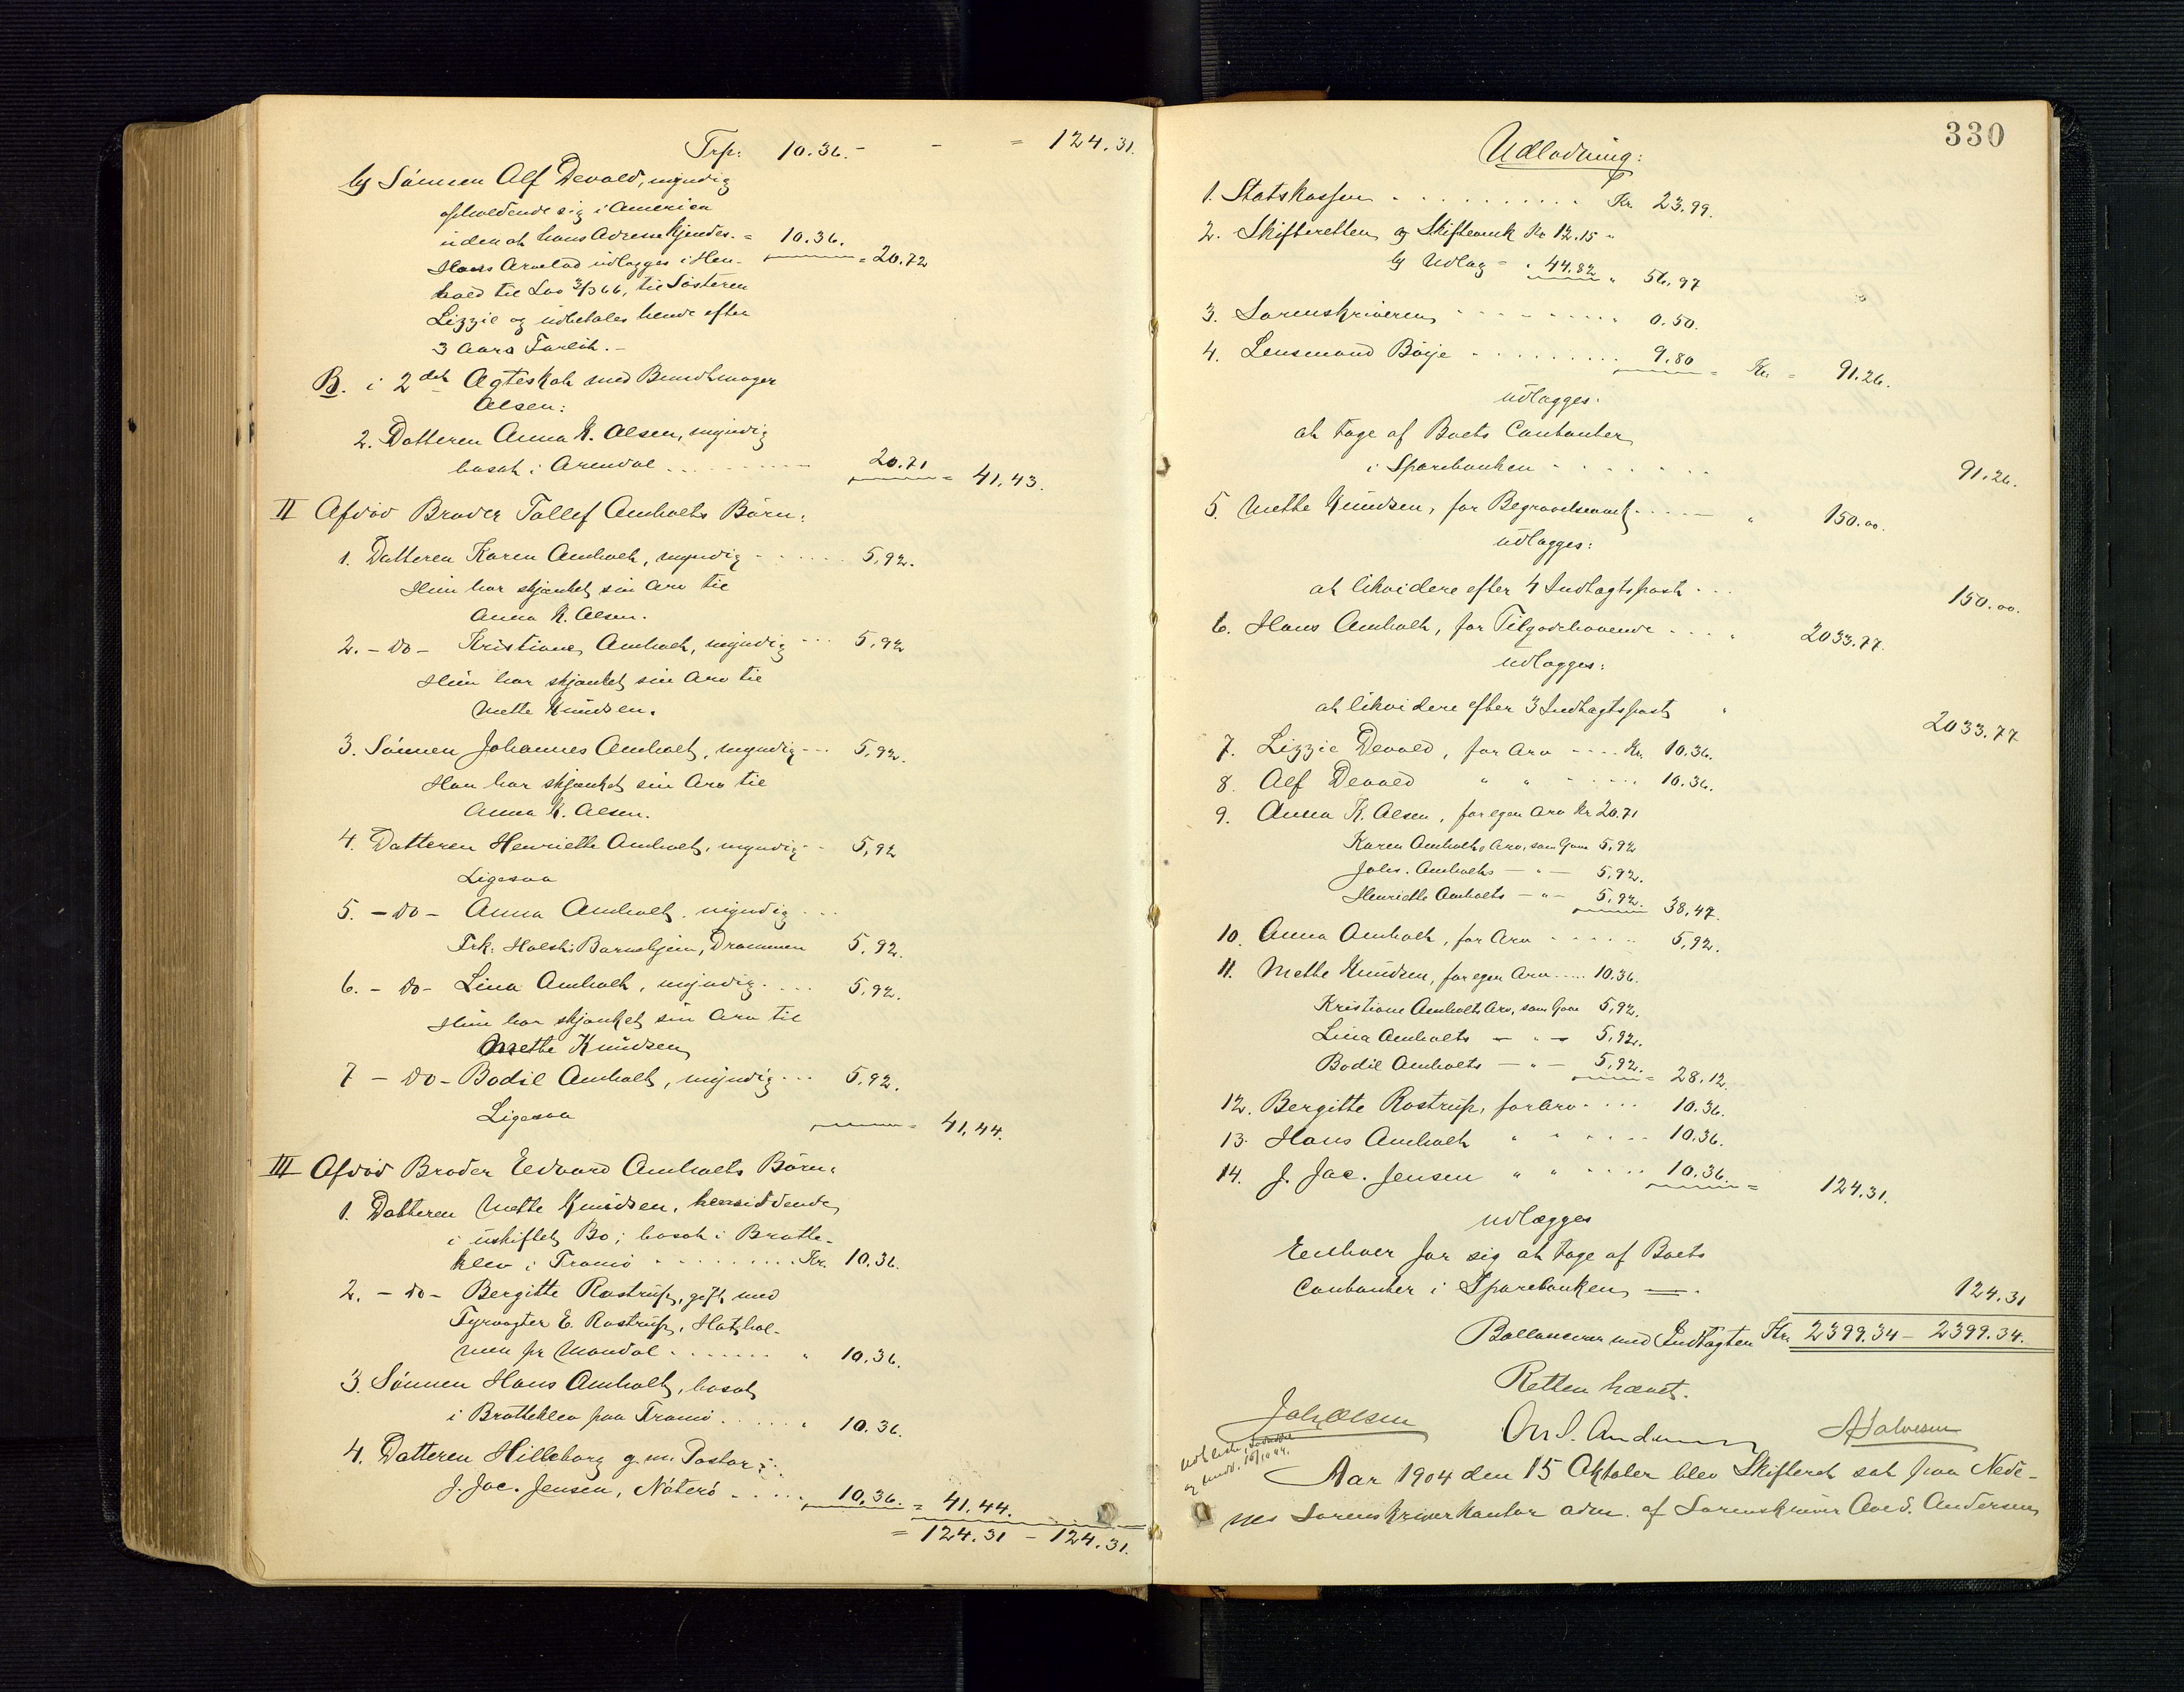 Trp: 10.36.- - = 124.31.
b) Sönnen Alf Devold, myndig
opholdende sig i Amerika
uden at hans Adresse kjendes. = 10.36. = 20.72
Hans Arvelod udlægges i Hen-
hold til Lov 3/3 66, til Søsteren
Lizzie og udbetales hende efter
3 Aars Forløb.-
B. i 2det Ægteskab med Bundtmager
Olsen:
2. Datteren Anna K. Olsen, myndig
bosat i Arendal ......... 20.71 = 41,43.
II Afdød Broder Tallef Amholts Börn:
1. Datteren Karen Amholt, myndig ..... 5,92.
Hun har skjænket sin Arv til
Anna K. Olsen.
2. - do - Kristiane Amholt, myndig ... 5,92
Hun har skjænket sin Arv til
Mette Knudsen.
3. Sönnen Johannes Amholt, myndig ... 5,92.
Han har skjænket sin Arv til
Anna K. Olsen.
4. Datteren Henriette Amholt, myndig .. 5,92
Ligesaa
5. - do - Anna Amholt, myndig ...
Frk: Holsts Barnehjem, Drammen 5,92.
6. - do - Lina Amholt, myndig .... 5,92.
Hun har skjænket sin Arv til
Mette Knudsen
7 - do - Bodil Amholt, myndig ... 5,92.
Ligesaa = 41,44.
III Afdød Broder Edvard Amholts Börn:
1. Datteren Mette Knudsen, hensiddende
i uskiftet Bo; bosat i Bratte-
klev i Tromö ......... Kr. 10,36.
2. - do - Bergitte Rostrup, gift med
Fyrvogter E. Rostrup, Hatzhol-
men pr Mandal ....... " 10,36.
3. Sönnen Hans Amholt, bosat
i Bratteklev paa Tromö ..... " 10.36.
4. Datteren Hilleborg g. m. Pastor
J. Jac. Jensen, Nöterö ..... 10,36. = 41,44.
= 124.31 - 124.31.
330
Udlodning:
1. Statskassen .......... Kr. 23.99.
2. Skifteretten, a) Skiftesenk Kr 12.15 -
b) Udlag - " 44.82 " 56,97
3. Sorenskriveren ......... " 0.50.
4. Lensmand Böije ......... 9.80 = Kr. = 91.26.
udlægges:
at tage af Boets Contanter
i Sparebanken ....... 91.26.
5. Mette Knudsen, for Begravelsesomk. ..... " 150.00.
udlægges:
at likvidere efter 4 Indtægtspost ... 150.00.
6. Hans Amholt, for Tilgodehavende .... " 2033.77.
udlægges:
at likvidere efter 3 Indtægtspost " 2033.77
7. Lizzie Devold, for Arv .... Kr. 10.36.
8. Alf Devold " " ..... 10.36.
9. Anna K. Olsen, for egen Arv Kr 20.71
Karen Amholts Arv, som Gave 5,92
Johs. Amholts - " - 5,92.
Henriette Amholts - " - 5,92. 38,47.
10. Anna Amholt, for Arv ..... 5,92.
11. Mette Knudsen, for egen Arv ..... 10.36.
Kristiane Amholts Arv, som Gave 5,92.
Lina Amholts - " - 5,92.
Bodil Amholts - " - 5,92. = 28.12.
12. Bergitte Rostrup, for Arv .... 10.36.
13. Hans Amholt " " ..... 10.36.
14. J. Jac. Jensen " " .... 10.36. = 124.31.
udlægges
Enhver for sig at tage af Boets
Contanter i Sparebanken = . 124.31
Ballancerer med Indtægten Kr. 2399.34 - 2399.34.
Retten hævet.
Joh. Olsen Ove S. Andersen A. Halvorsen
16/10 44.
Aar 1904 den 15 Oktober blev Skifteret sat paa Nede-
nes Sorenskriverkontor adm. af Sorenskriver Ove S. Andersen